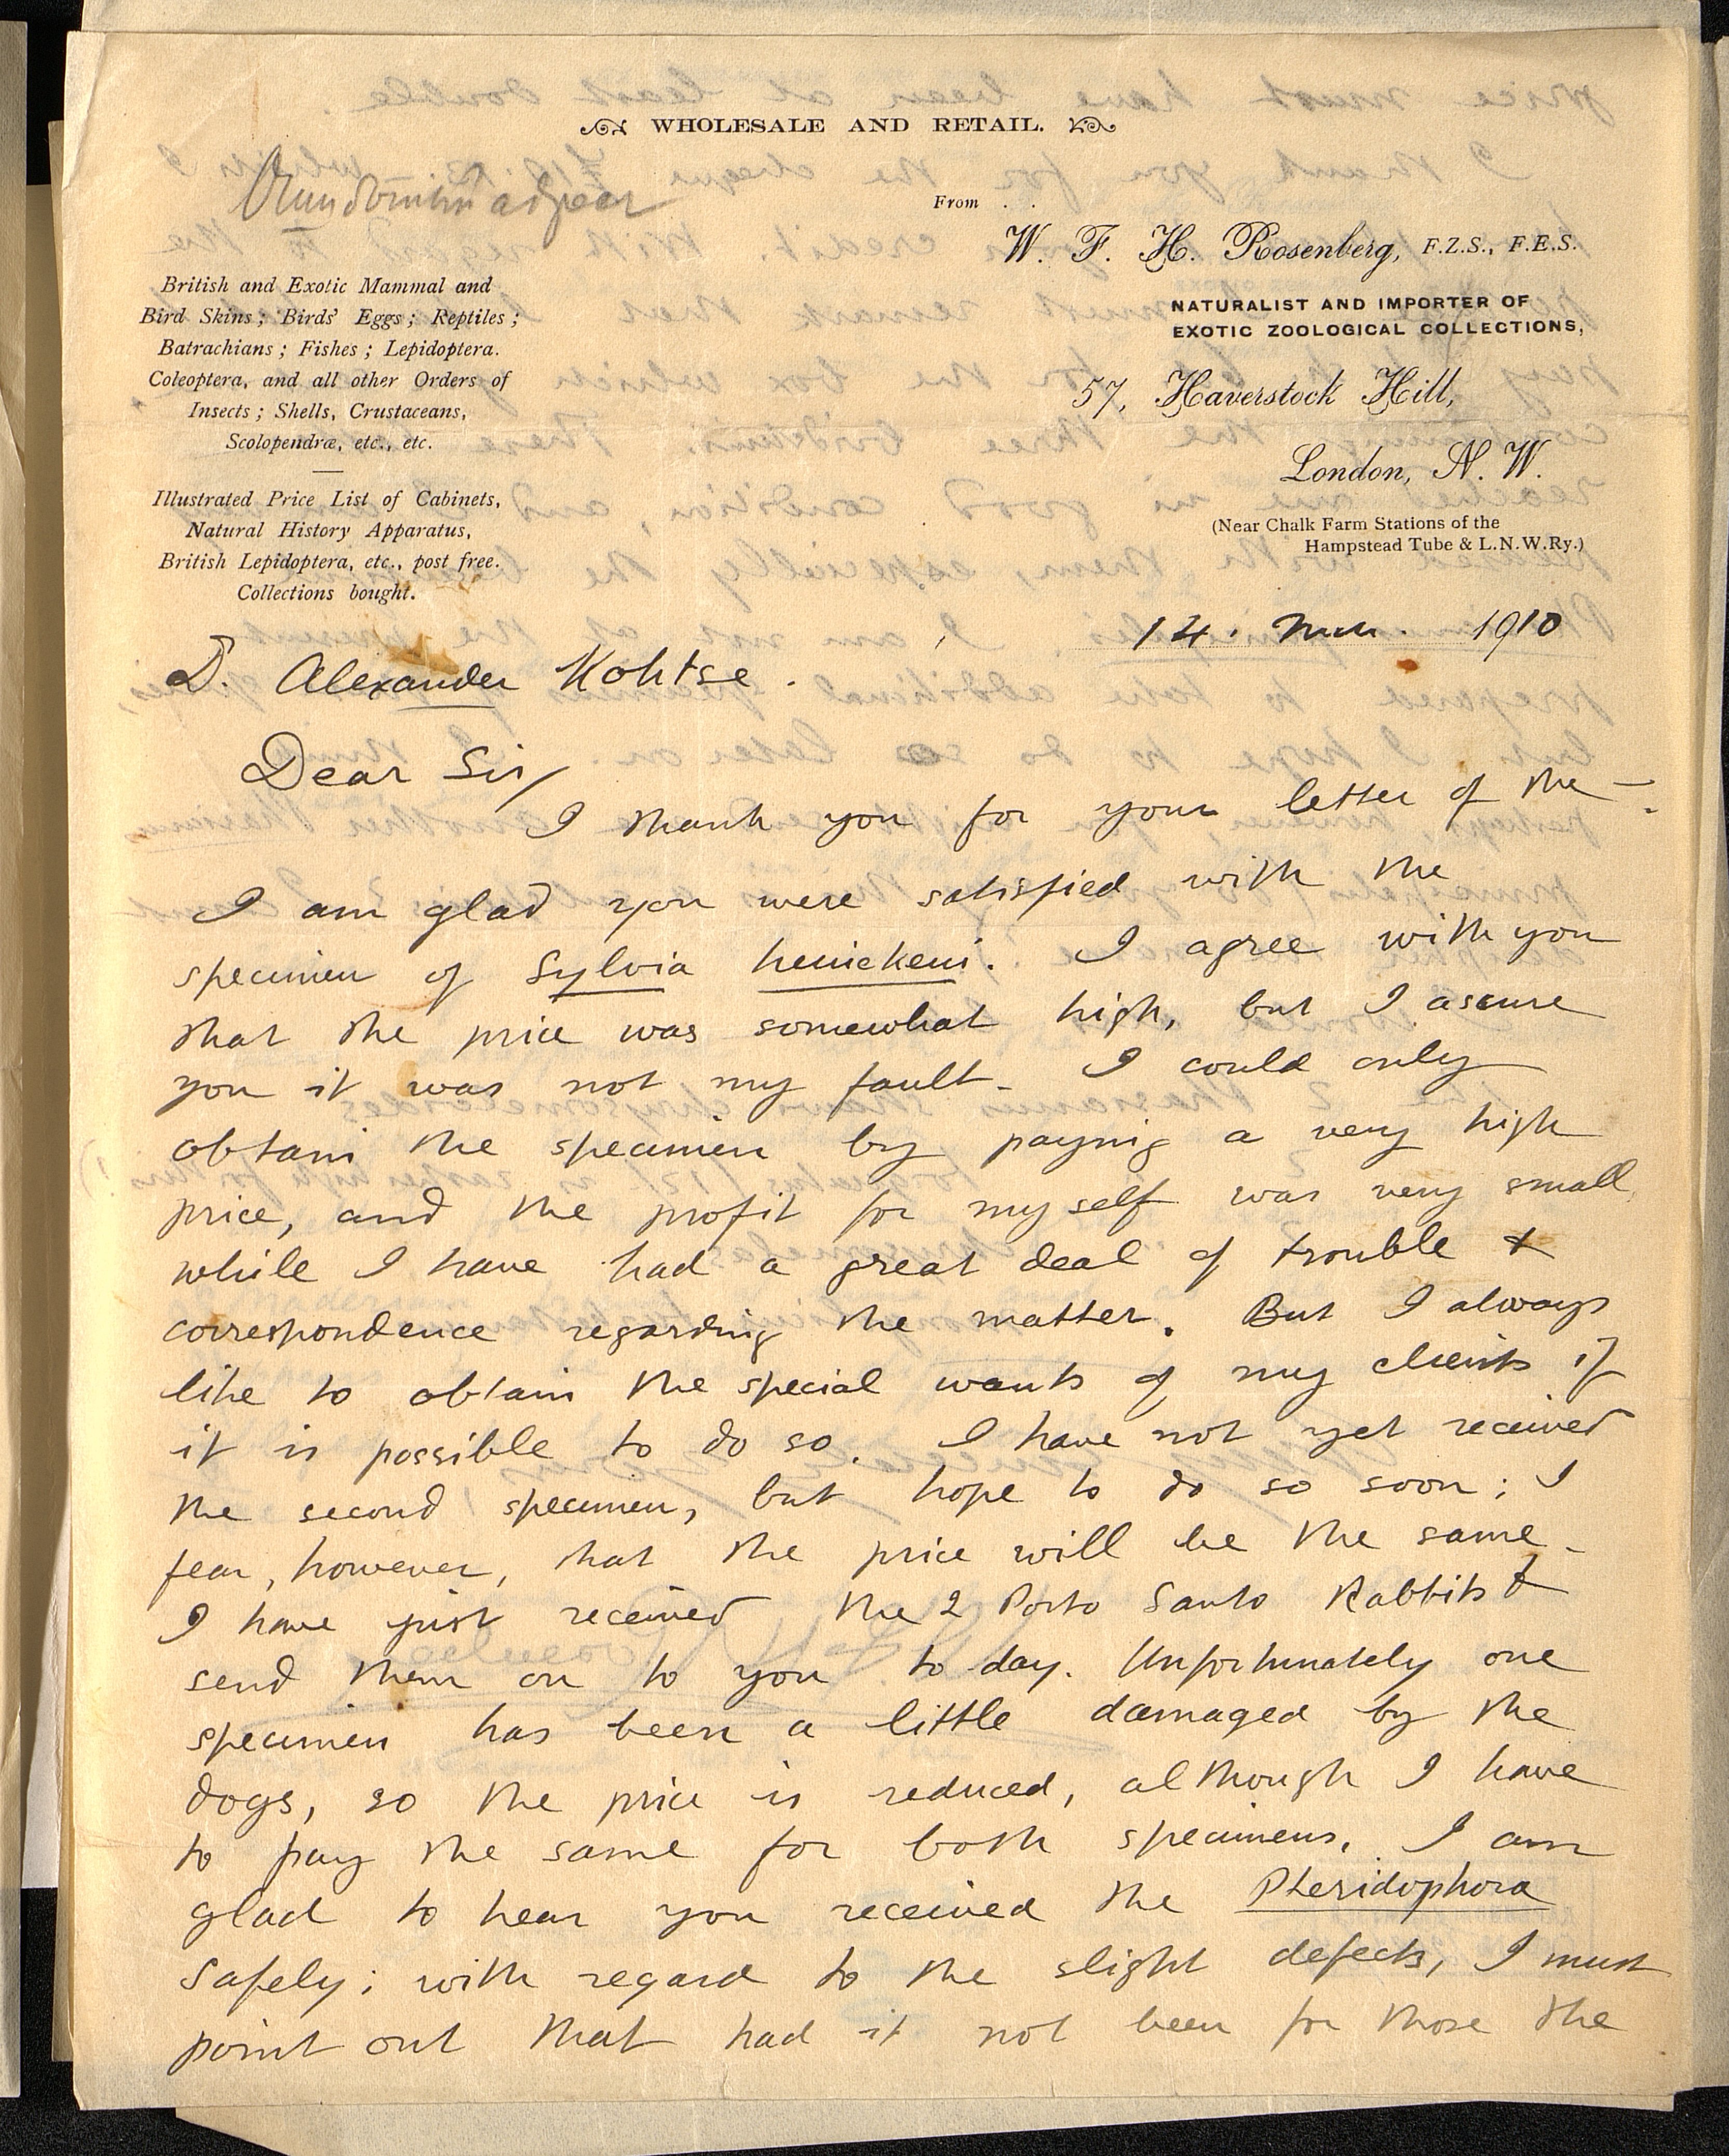 WHOLESALE AND RETAIL.
From . .
W. F. H. Rosenberg, F.Z.S., F.E.S.
NATURALIST AND IMPORTER OF
EXOTIC ZOOLOGICAL COLLECTIONS,
57, Haverstock Hill,
London, N. W.
(Near Chalk Farm Stations of the
Hampstead Tube & L.N.W.Ry.)
British and Exotic Mammal and
Bird Skins; Birds' Eggs; Reptiles;
Batrachians; Fishes; Lepidoptera.
Coleoptera, and all other Orders of
Insects; Shells, Crustaceans,
Scolopendræ, etc., etc.
Illustrated Price List of Cabinets,
Natural History Apparatus,
British Lepidoptera, etc., post free.
Collections bought.
14. 1910
D. Alexander Kohtse.
Dear Sir/
I thank you for your letter of the -.
I am glad you were satisfied with the
specimen of Sylvia heinekeni. I agree with you
that the price was somewhat high, but I assure
you it was not my fault. I could only
obtain the specimen by paying a very high
price, and the profit for myself was very small,
while I have had a great deal of trouble &
correspondence regarding the matter. But I always
like to obtain the special wants of my clients if
it is possible to do so. I have not yet received
the second specimen, but hope to do so soon; I
fear, however, that the price will be the same.
I have just received the 2 Porto Santo Rabbits &
send them on to you to day. Unfortunately one
specimen has been a little damaged by the
dogs, so the price is reduced, although I have
to pay the same for both specimens. I am
glad to hear you received the Pteridophora
safely; with regard to the slight defects, I must
point out that had it not been for those the